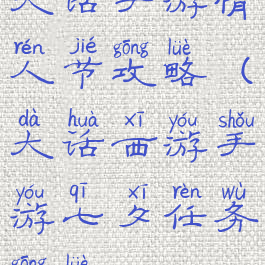 大话手游情
rén jié gōng lüè
人节攻略（
dà huà xī yóu shǒu
大话西游手
yóu qī xī rèn wù
游七夕任务
gōng lüè